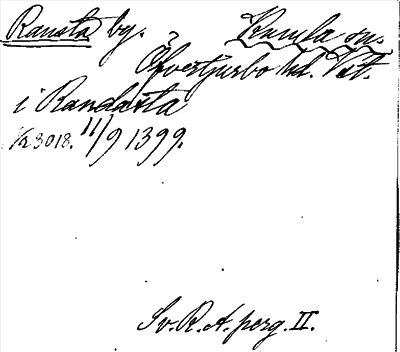 Ransta by. Kumla sn.
Öfvertjurbo hd. Vstm.
i Randasta
1/2 3018. 11/9 1399.
Sv. R. A. perg. II.